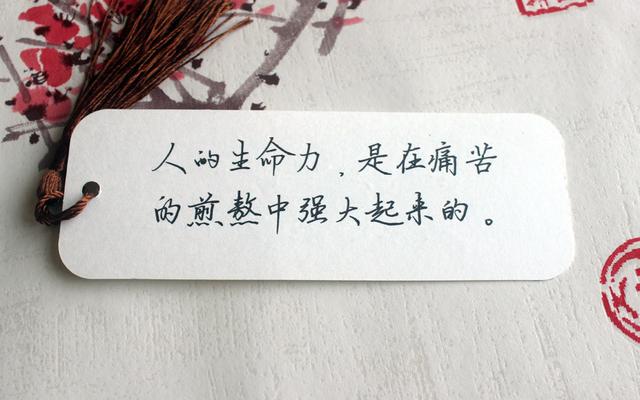 人的生命力，是在痛苦
的煎熬中强大起来的。